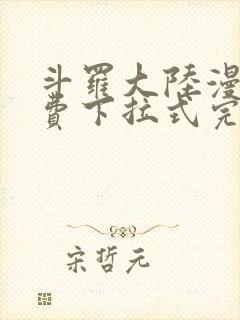 斗羅大陸漫
費下拉式完
宋哲元